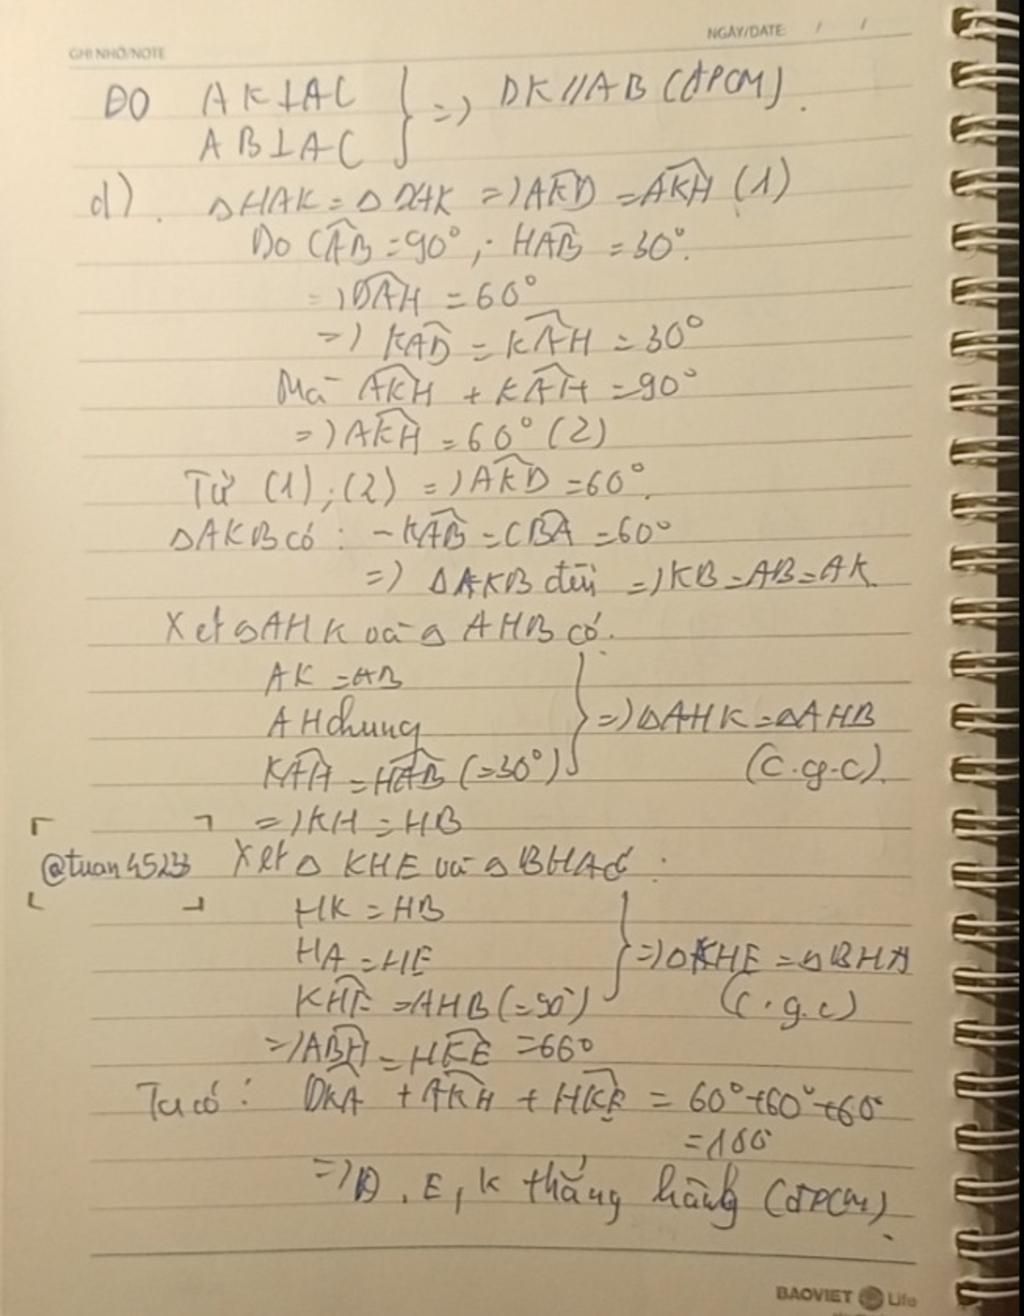 GHI NHỚ/NOTE
NGÀY/DATE: / /
DO AK⊥AC
AB⊥AC } => DK//AB (đPCM).
d). △HAK = △DAK => AKD = AKH (1)
Do CAB = 90°, HAB = 30°.
=> DAH = 60°
=> KAD = KAH = 30°
Mà AKH + KAH = 90°
=> AKH = 60° (2)
Từ (1); (2) => AKD = 60°.
△AKB có: - KAB = CBA = 60°
=> △AKB đều => KB = AB = AK.
Xét △AHK và △AHB có.
AK = AB
AH chung
KAH = HAB (=30°) } => △AHK = △AHB
(c.g.c).
=> KH = HB
@tuan4523 Xét △ KHE và △ BHA có :
HK = HB
HA = HE
KHE = AHB (=90°) } => △KHE = △BHA
(c.g.c)
=> ABH = HKE = 660
Ta có: DKA + AKH + HKE = 60° + 60° + 60°
= 180
=> D, E, K thẳng hàng (đPCM).
BAOVIET Life